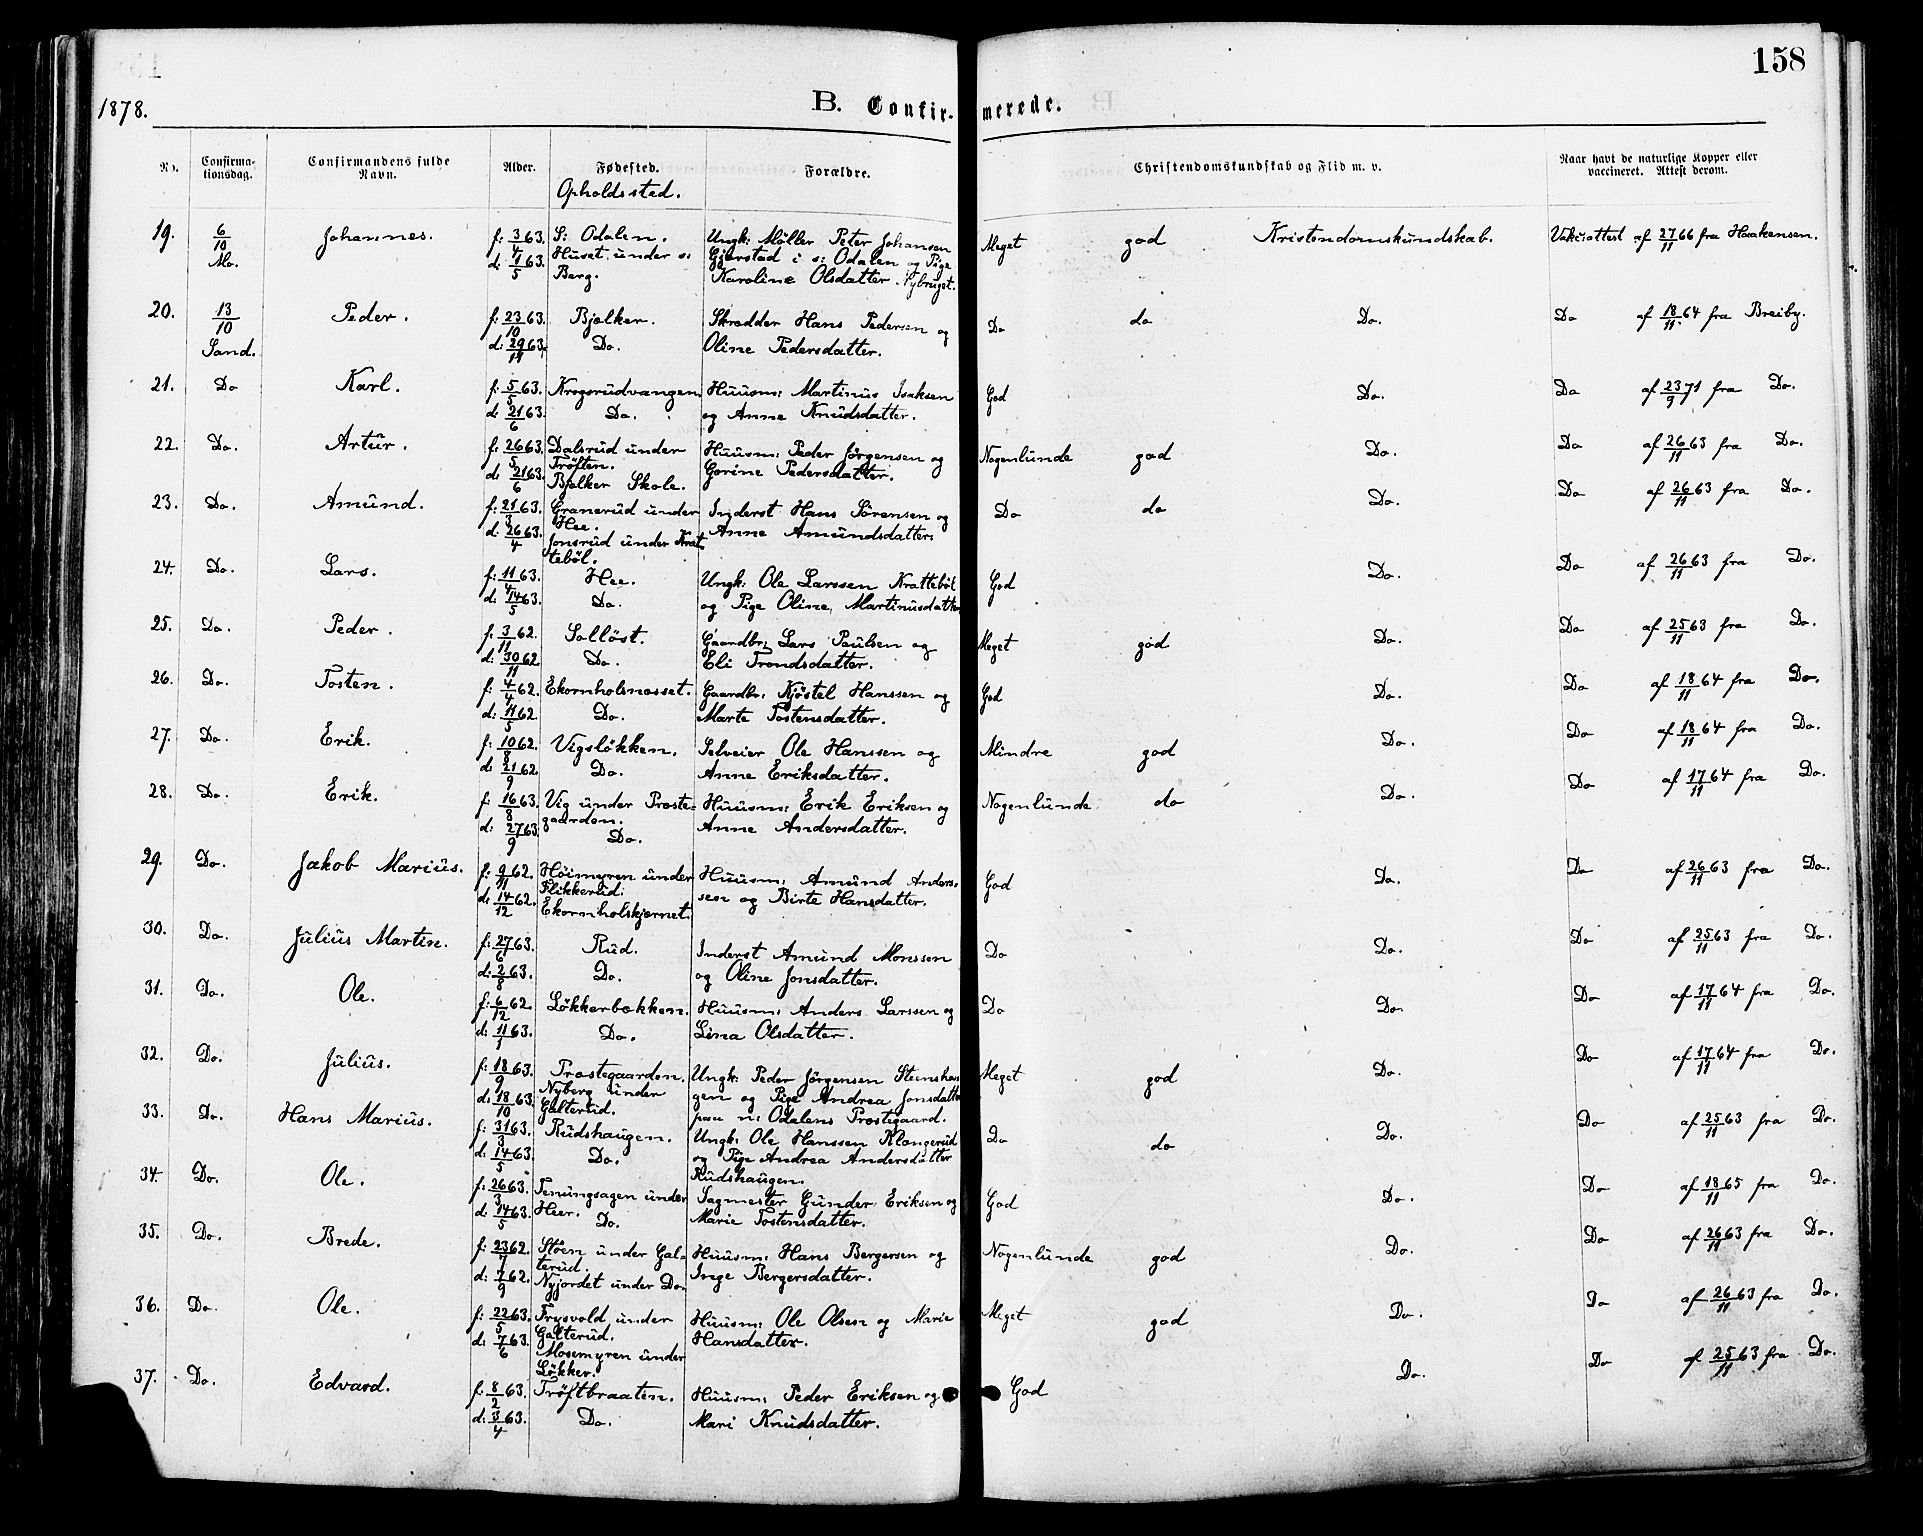 158
1878.
B. Confirmerede.
No. Confirmationsdag. Confirmandens fulde Navn. Alder. Fødested. Opholdssted. Forældre. Christendomskundskab og Flid m. v. Naar havt de naturlige Kopper eller vaccineret. Attest derom.
19. 6/10 Mo. Johannes. f: 3/4 63. S: Odalen. Ungk: Møller Peter Johansen Meget god Kristendomskundskab. Vakc:attest af 27/11 66 fra Haakensen.
d: 1/5 63. Huset under s: Berg. Gjerstad i s: Odalen og Pige
Karoline Olsdatter Nybruget.
20. 13/10 Sand. Peder. f: 23/10 63. Bjølker. Skrædder Hans Pedersen og Do do Do. Do af 18/11 64 fra Breiby.
d: 29/11 63. Do. Oline Pedersdatter.
21. Do Karl. f: 5/5 63. Krogsrudvangen. Huusm: Martinus Isaksen God Do. Do af 23/9 71 fra Do.
d: 21/6 63. Do. og Anne Knudsdatter.
22. Do. Artur. f: 26/5 63. Dalsrud under Trøften. Huusm: Peder Jørgensen og Nogenlunde god Do. Do af 26/11 63 fra Do.
d: 21/6 63. Bjølker Skole. Gorine Pedersdatter.
23. Do. Amund. f: 21/3 63. Granerud under Hee. Inderst Hans Sørensen og Do do Do. Do af 26/11 63 fra Do.
d: 26/4 63. Jonsrud under Krattebøl. Anne Amundsdatter.
24. Do. Lars. f: 11/4 63. Hee. Ungk: Ole Larssen Krattebøl God Do. Do af 26/11 63 fra Do.
d: 14/5 63. Do. og Pige Oline Martinusdatter
25. Do. Peder. f: 3/11 62. Solløst. Gaardbr: Lars Paulsen og Meget god Do. Do af 25/11 63 fra Do.
d: 30/11 62 Do. Eli Trondsdatter.
26. Do. Tosten. f: 4/4 62. Ekornholsnæsset. Gaardbr: Kjøstel Hanssen og God Do. Do af 18/11 64 fra Do.
d: 11/5 62 Do. Marte Tostensdatter.
27. Do. Erik. f: 10/8 62. Vigsløkken. Selveier Ole Hanssen og Mindre god Do. Do af 18/11 64 fra Do.
d: 21/9 62. Do. Anne Eriksdatter.
28. Do. Erik. f: 16/8 63. Vig under Prestegaarden. Huusm: Erik Eriksen og Nogenlunde do Do. Do af 17/11 64 fra Do.
d: 27/9 63. Do. Anne Andersdatter.
29. Do. Jakob Marius. f: 9/11 62. Høimyren under Flikkerud. Huusm: Amund Anderssen God Do. Do af 26/11 63 fra Do.
d: 14/12 62. Ekornholskjærnet. og Birte Hansdatter.
30. Do. Julius Martin. f: 27/6 63. Rud. Inderst Amund Monssen Do Do. Do af 25/11 63 fra Do.
d: 2/8 63. Do. og Oline Jonsdatter.
31. Do. Ole. f: 6/12 62. Løkkerbækken. Huusm: Anders Larssen og Do Do. Do af 17/11 64 fra Do.
d: 11/1 63. Do. Lina Olsdatter.
32. Do. Julius. f: 18/9 63. Præstegaarden. Ungk: Peder Jørgensen Meget god Do. Do af 17/11 64 fra Do.
d: 18/10 63. Nyberg under Galterud. og Pige Andrea Jonsdatter
paa n: Odalens Præstegaard.
33. Do. Hans Marius. f: 31/3 63. Rudshaugen. Ungk: Ole Hanssen Klangerud Do do Do. Do af 25/11 63 fra Do.
d: 14/5 63. Do. og Pige Andrea Andersdatter
Rudshaugen.
34. Do. Ole. f: 26/3 63. Tenungsagen under Sagmester Gunder Eriksen og God Do. Do af 18/11 65 fra Do.
d: 14/5 63. Heer. Do. Marie Tostensdatter.
35. Do. Brede. f: 23/7 62. Støen under Galterud. Huusm: Hans Bergersen og Nogenlunde god Do. Do af 26/11 63 fra Do.
d: 7/9 62. Nyjordet under Do. Inge Bergersdatter.
36. Do. Ole. f: 22/5 63. Frysvold under Galterud. Huusm: Ole Olsen og Marie Meget god Do. Do af 26/11 63 fra Do.
d: 7/6 63. Mosemyren under Løkker. Hansdatter.
37. Do. Edvard. f: 8/2 63. Trøftbraaten. Huusm: Peder Eriksen og God Do. Do af 25/11 63 fra Do.
d: 3/4 63. Do. Mari Knudsdatter.